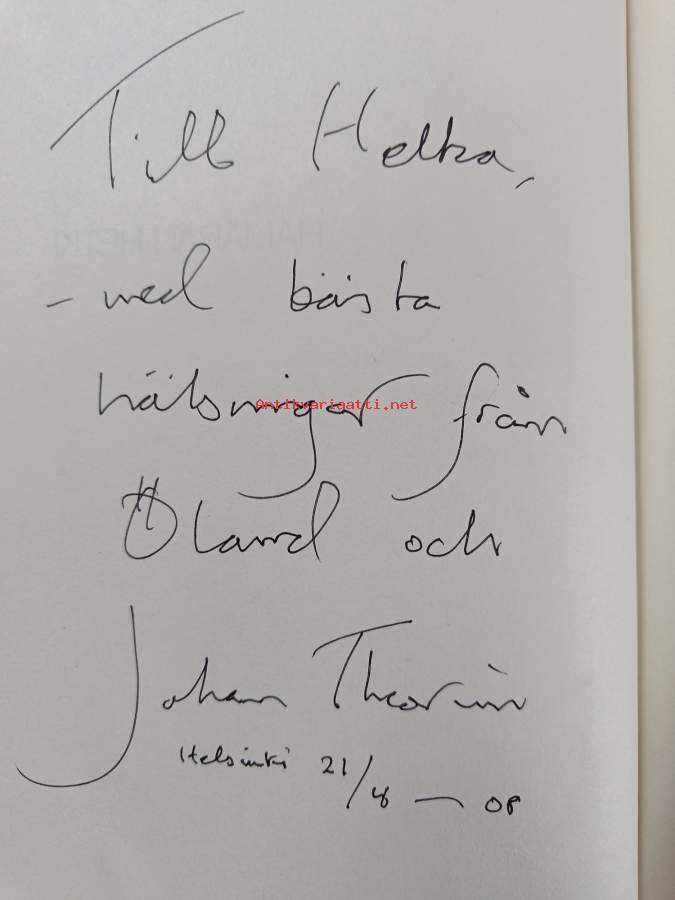 Till Helka,
– med bästa
hälsningar från
Antikvariaatti.net
Öland och
Johan Theorin
Helsinki 21/8 — 08